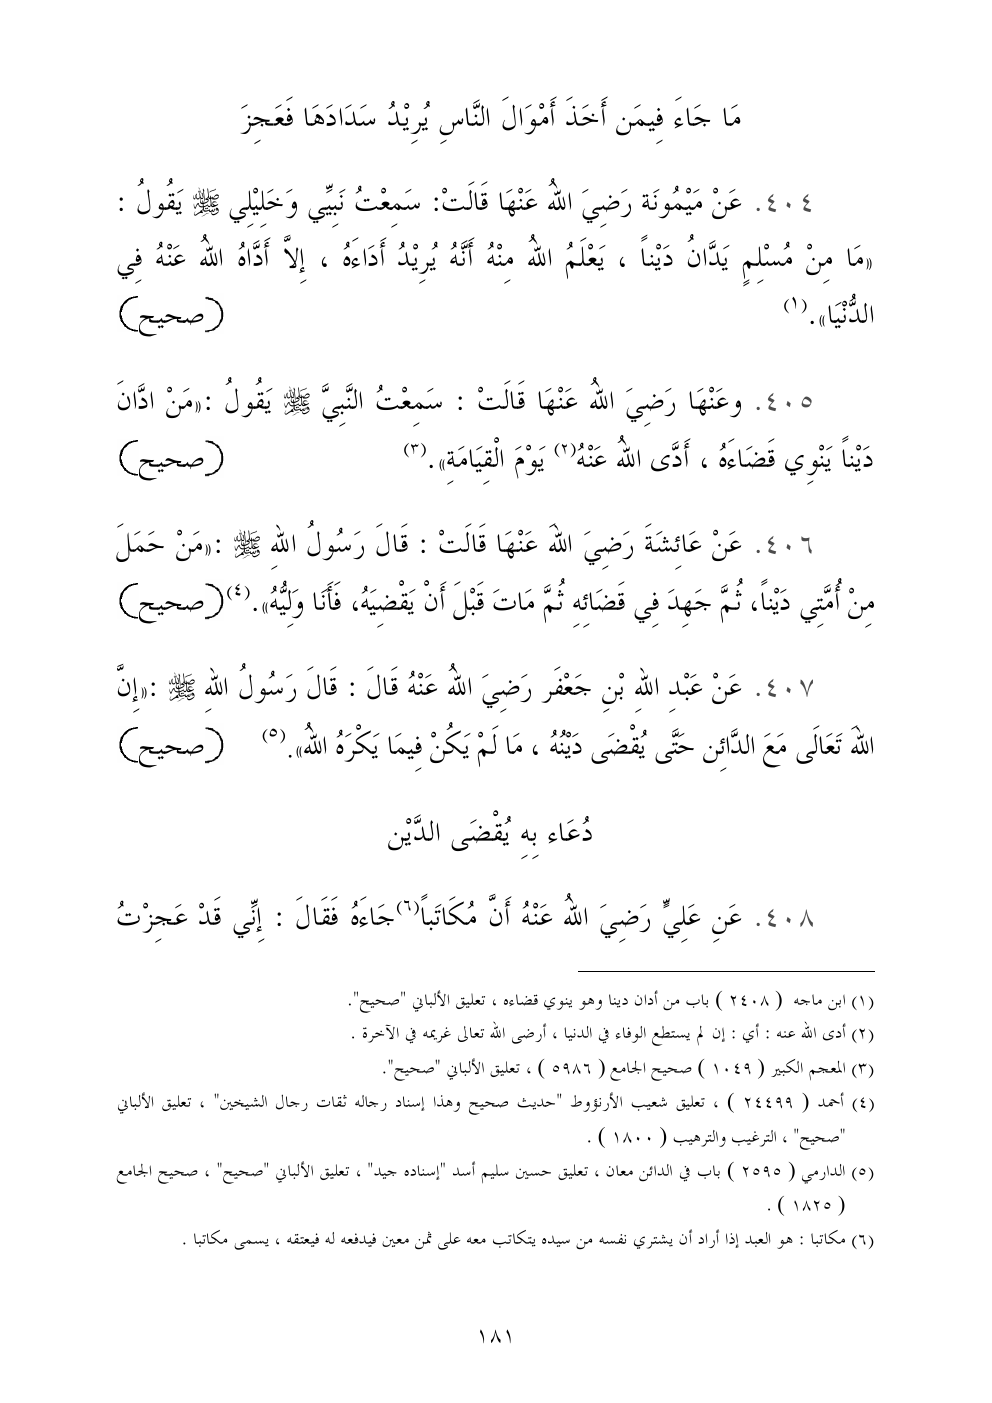 مَا جَاءَ فِيمَن أَخَذَ أَمْوَالَ النَّاسِ يُرِيْدُ سَدَادَهَا فَعَجِزَ
٤٠٤. عَنْ مَيْمُونَة رَضِيَ اللهُ عَنْهَا قَالَتْ: سَمِعْتُ نَبِيِّي وَخَلِيْلِي ﷺ يَقُولُ :
«مَا مِنْ مُسْلِمٍ يَدَّانُ دَيْناً ، يَعْلَمُ اللهُ مِنْهُ أَنَّهُ يُرِيْدُ أَدَاءَهُ ، إِلاَّ أَدَّاهُ اللهُ عَنْهُ فِي
الدُّنْيَا».(١) (صحيح)
٤٠٥. وعَنْهَا رَضِيَ اللهُ عَنْهَا قَالَتْ : سَمِعْتُ النَّبِيَّ ﷺ يَقُولُ :«مَنْ ادَّانَ
دَيْناً يَنْوِي قَضَاءَهُ ، أَدَّى اللهُ عَنْهُ(٢) يَوْمَ الْقِيَامَةِ».(٣) (صحيح)
٤٠٦. عَنْ عَائِشَةَ رَضِيَ اللهَ عَنْهَا قَالَتْ : قَالَ رَسُولُ اللهِ ﷺ :«مَنْ حَمَلَ
مِنْ أُمَّتِي دَيْناً، ثُمَّ جَهِدَ فِي قَضَائِهِ ثُمَّ مَاتَ قَبْلَ أَنْ يَقْضِيَهُ، فَأَنَا وَلِيُّهُ».(٤) (صحيح)
٤٠٧. عَنْ عَبْدِ اللهِ بْنِ جَعْفَر رَضِيَ اللهُ عَنْهُ قَالَ : قَالَ رَسُولُ اللهِ ﷺ :«إِنَّ
اللهَ تَعَالَى مَعَ الدَّائِن حَتَّى يُقْضَى دَيْنُهُ ، مَا لَمْ يَكُنْ فِيمَا يَكْرَهُ اللهُ».(٥) (صحيح)
دُعَاء بِهِ يُقْضَى الدَّيْن
٤٠٨. عَنِ عَلِيٍّ رَضِيَ اللهُ عَنْهُ أَنَّ مُكَاتَباً(٦)جَاءَهُ فَقَالَ : إِنِّي قَدْ عَجِزْتُ
(١) ابن ماجه ( ٢٤٠٨ ) باب من أدان دينا وهو ينوي قضاءه ، تعليق الألباني "صحيح".
(٢) أدى الله عنه : أي : إن لم يستطع الوفاء في الدنيا ، أرضى الله تعالى غريمه في الآخرة .
(٣) المعجم الكبير ( ١٠٤٩ ) صحيح الجامع ( ٥٩٨٦ ) ، تعليق الألباني "صحيح".
(٤) أحمد ( ٢٤٤٩٩ ) ، تعليق شعيب الأرنؤوط "حديث صحيح وهذا إسناد رجاله ثقات رجال الشيخين" ، تعليق الألباني
"صحيح" ، الترغيب والترهيب ( ١٨٠٠ ) .
(٥) الدارمي ( ٢٥٩٥ ) باب في الدائن معان ، تعليق حسين سليم أسد "إسناده جيد" ، تعليق الألباني "صحيح" ، صحيح الجامع
( ١٨٢٥ ) .
(٦) مكاتبا : هو العبد إذا أراد أن يشتري نفسه من سيده يتكاتب معه على ثمن معين فيدفعه له فيعتقه ، يسمى مكاتبا .
١٨١